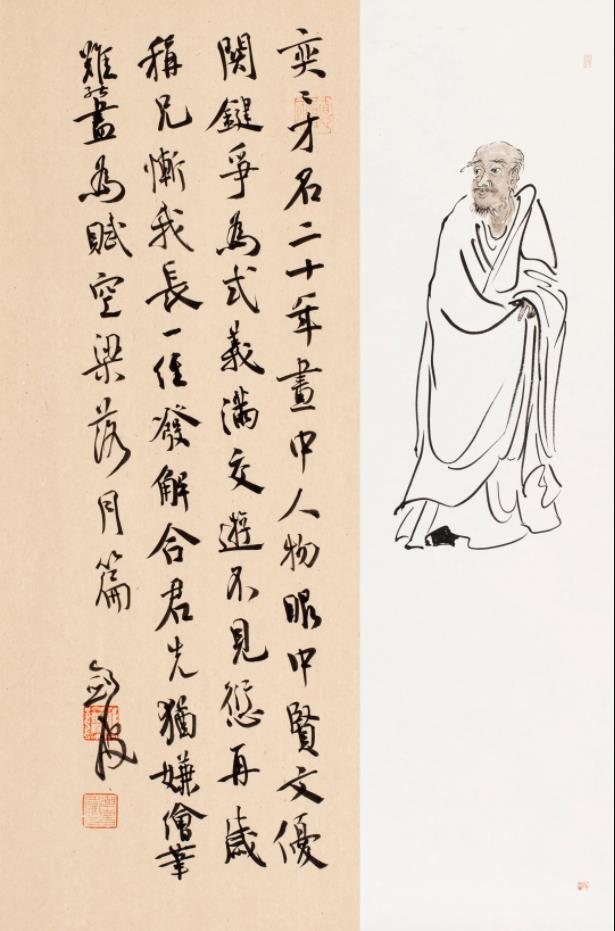 奕〻才名二十年畫中人物眼中賢文優
関鍵爭為式義滿交遊不見愆再歲
稱兄慚我長一經發解合君先猶嫌繪筆
難能盡為賦空梁落月篇